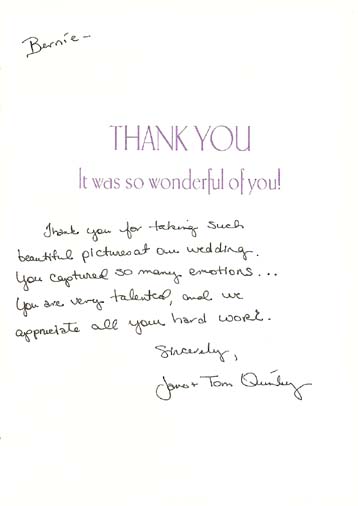 Bernie-
THANK YOU
It was so wonderful of you!
Thank you for taking such
beautiful pictures at our wedding.
You captured so many emotions...
You are very talented, and we
appreciate all your hard work.
Sincerely,
Tom